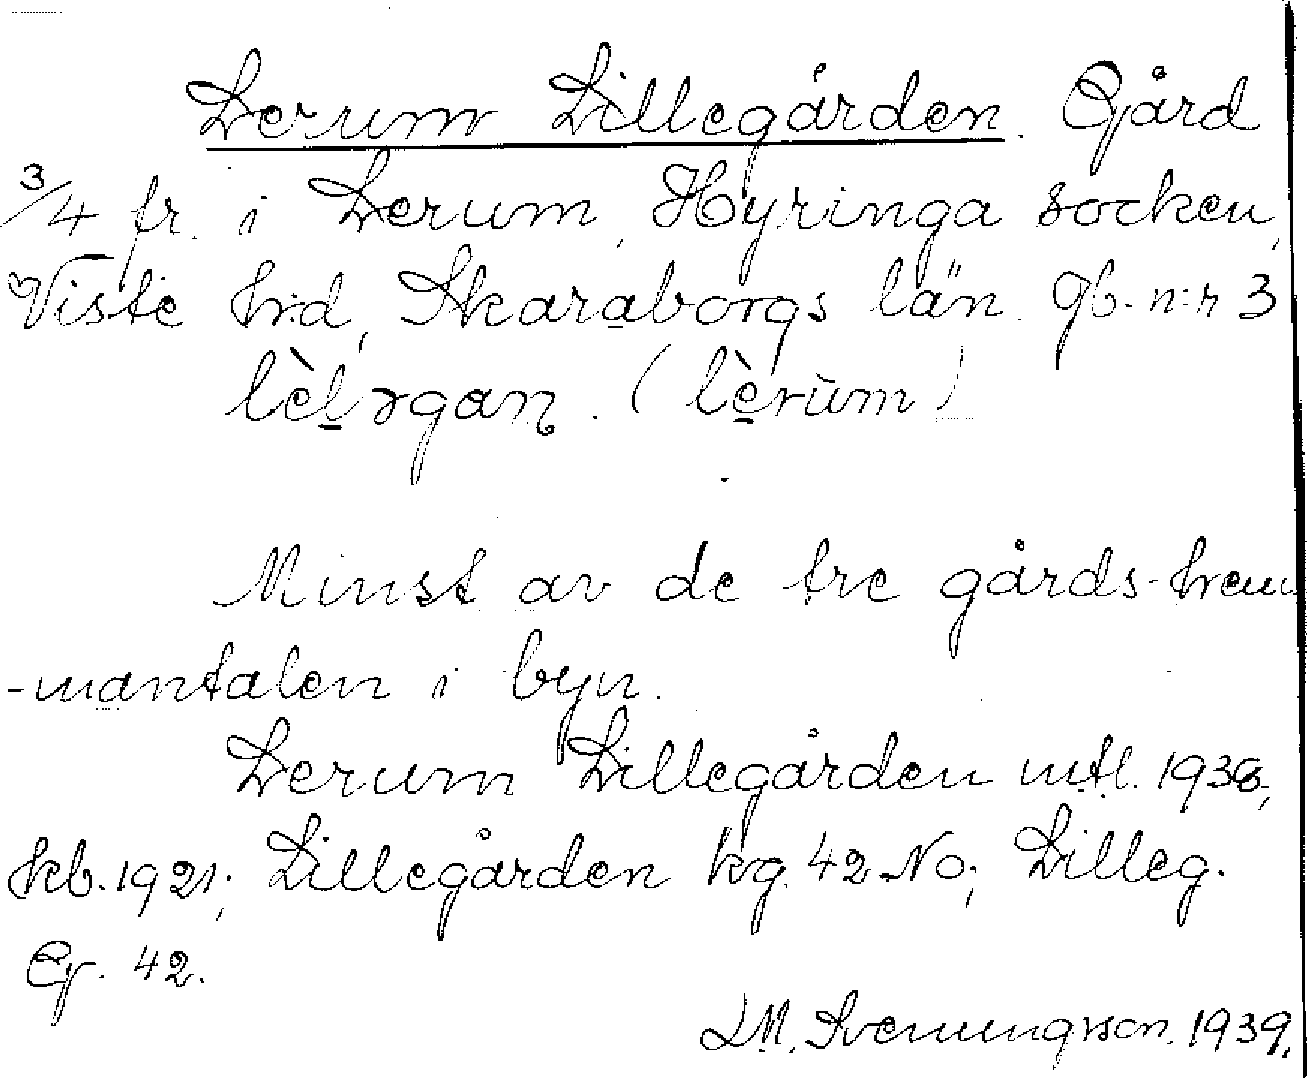 Lerum Lillegården. Gård
3/4 fr. i Lerum, Hyringa socken,
Viste hrd, Skaraborgs län. Gb. n:r 3
(lèrùm)
Minst av de tre gårds-hem
-mantalen i byn.
Lerum Lillegården mtl. 1938,
Jkb. 1921; Lillegården kg. 42 No; Lilleg.
42.
Svenungsson. 1939.